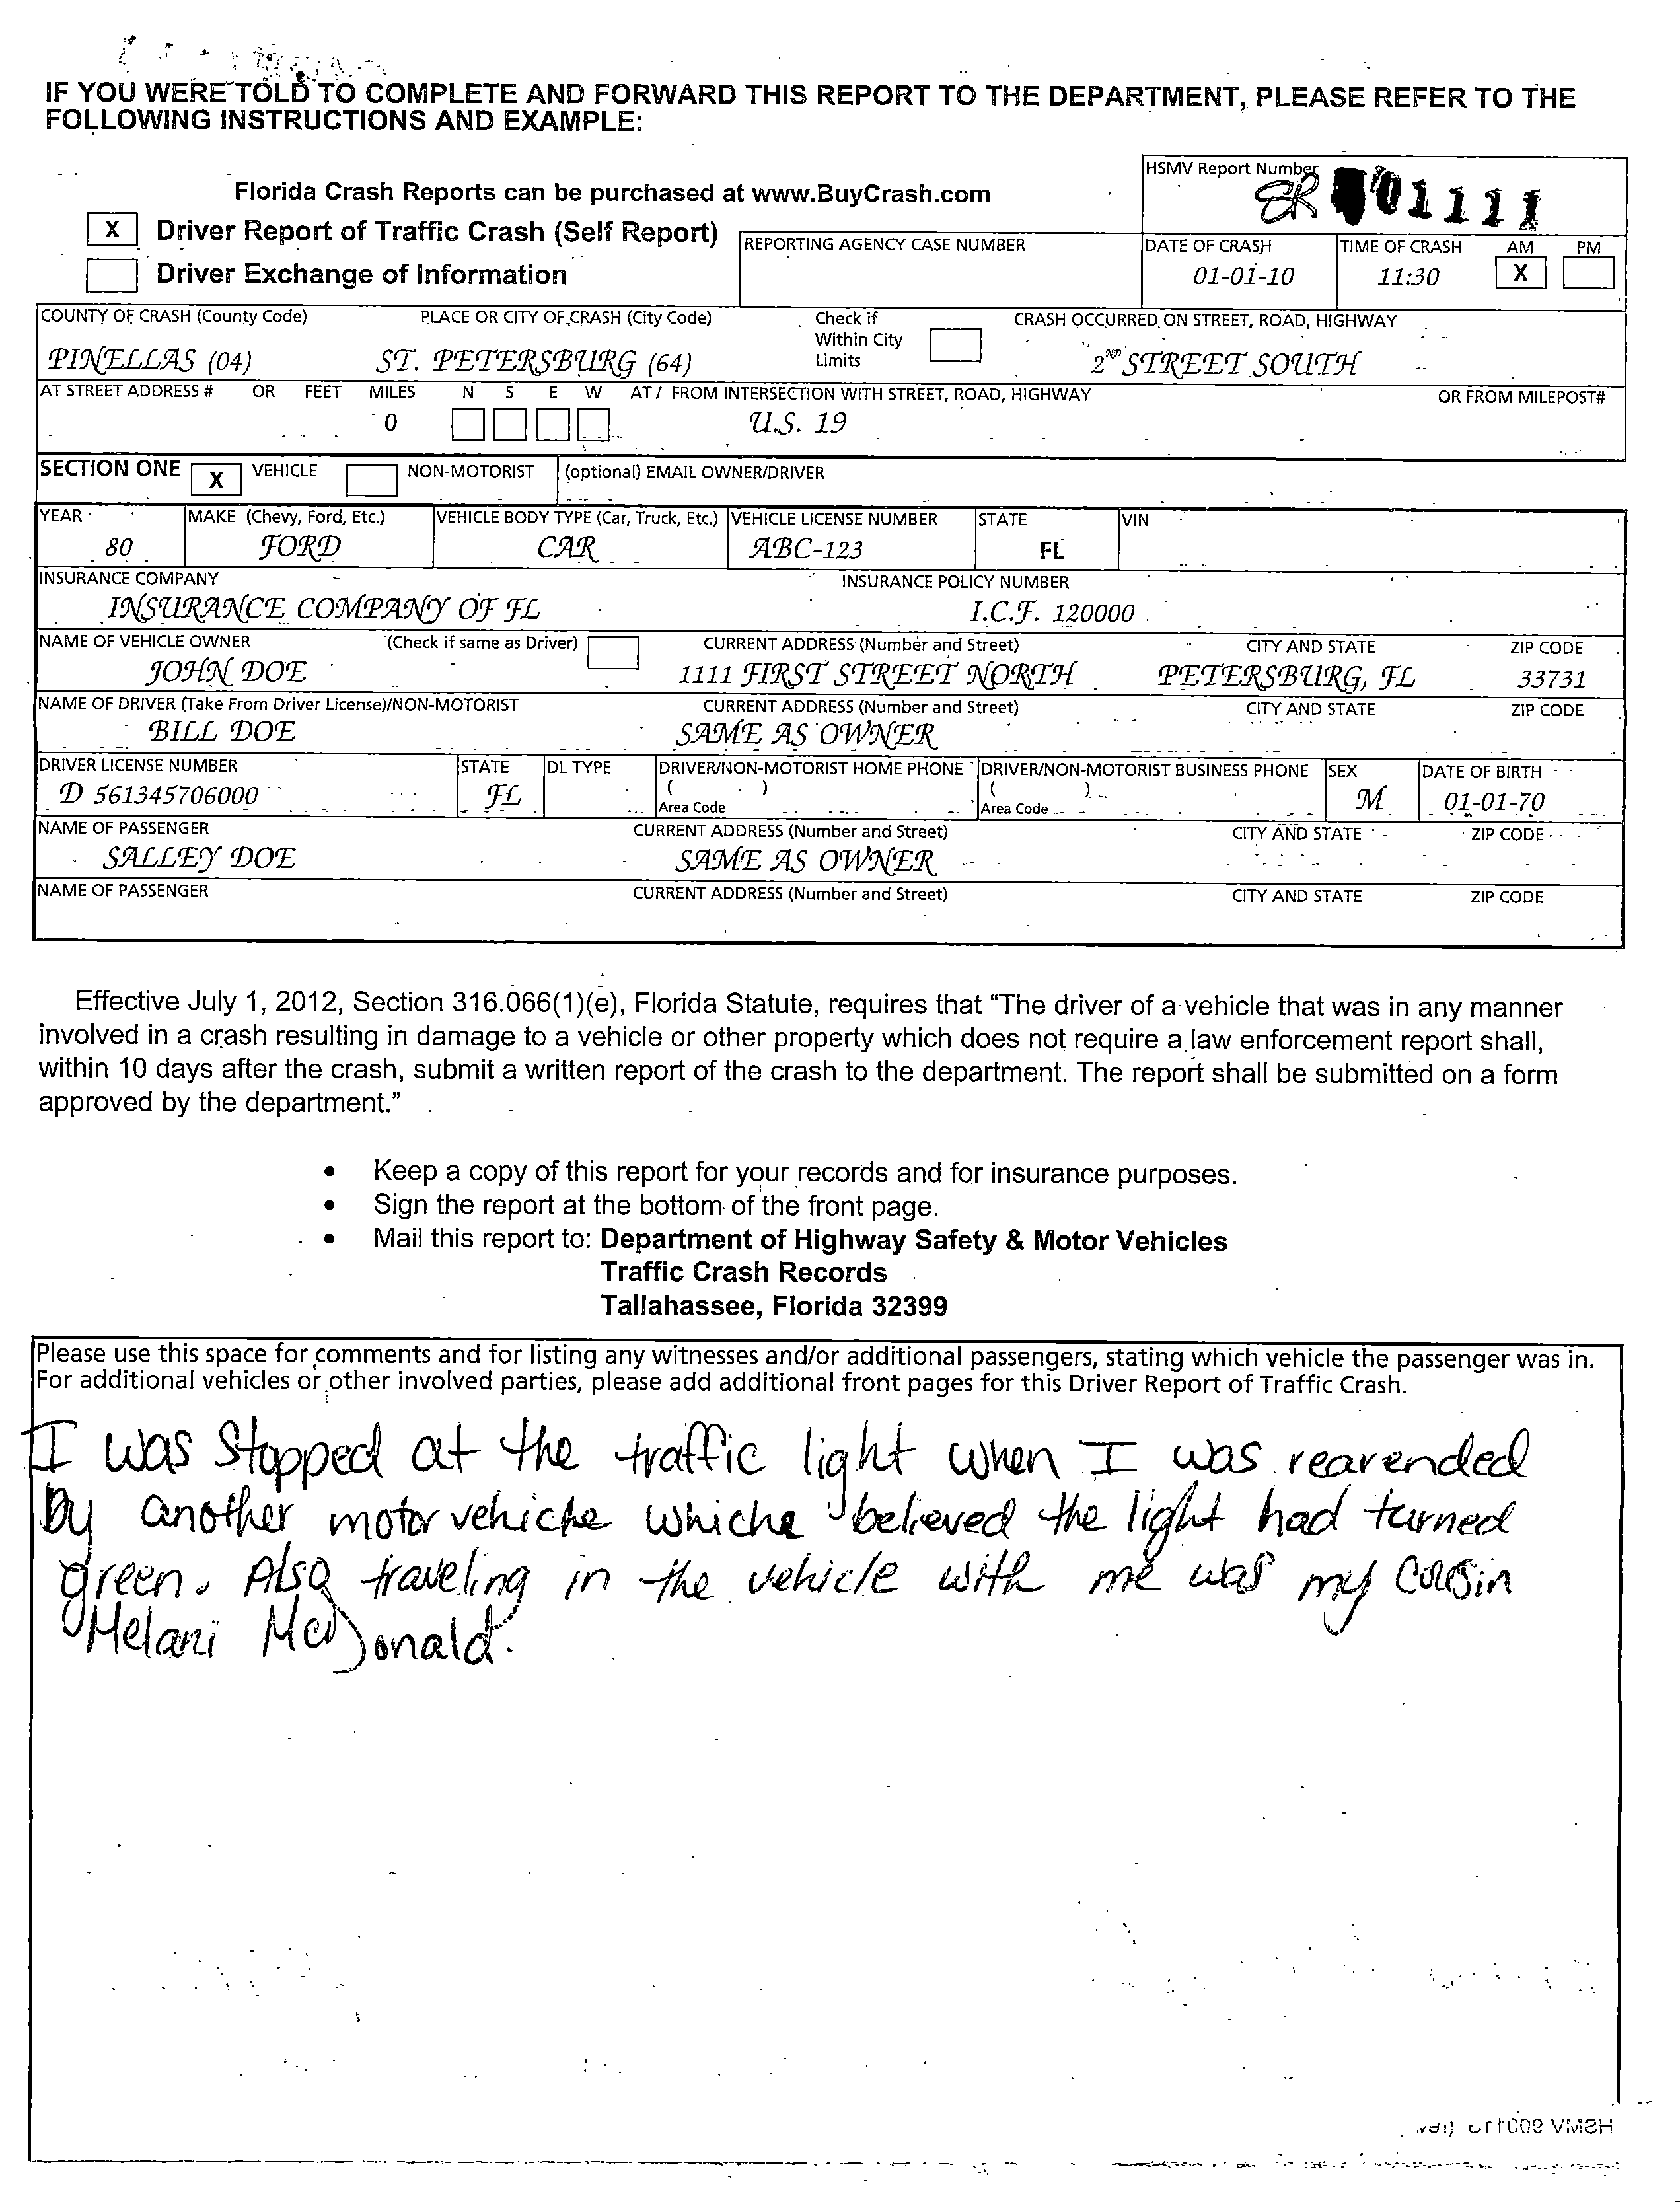 IF YOU WERE TOLD TO COMPLETE AND FORWARD THIS REPORT TO THE DEPARTMENT, PLEASE REFER TO THE
FOLLOWING INSTRUCTIONS AND EXAMPLE:
HSMV Report Number
01111
Florida Crash Reports can be purchased at www.BuyCrash.com
X Driver Report of Traffic Crash (Self Report)
Driver Exchange of Information
REPORTING AGENCY CASE NUMBER
DATE OF CRASH TIME OF CRASH AM PM
01-01-10 11:30 X
COUNTY OF CRASH (County Code) PLACE OR CITY OF CRASH (City Code) Check if Within City Limits CRASH OCCURRED ON STREET, ROAD, HIGHWAY
PINELLAS (04) ST. PETERSBURG (64) 2ND STREET SOUTH
AT STREET ADDRESS # OR FEET MILES N S E W AT / FROM INTERSECTION WITH STREET, ROAD, HIGHWAY OR FROM MILEPOST#
0 U.S. 19
SECTION ONE X VEHICLE NON-MOTORIST (optional) EMAIL OWNER/DRIVER
YEAR MAKE (Chevy, Ford, Etc.) VEHICLE BODY TYPE (Car, Truck, Etc.) VEHICLE LICENSE NUMBER STATE VIN
80 FORD CAR ABC-123 FL
INSURANCE COMPANY INSURANCE POLICY NUMBER
INSURANCE COMPANY OF FL I.C.F. 120000
NAME OF VEHICLE OWNER (Check if same as Driver) CURRENT ADDRESS (Number and Street) CITY AND STATE ZIP CODE
JOHN DOE 1111 FIRST STREET NORTH PETERSBURG, FL 33731
NAME OF DRIVER (Take From Driver License)/NON-MOTORIST CURRENT ADDRESS (Number and Street) CITY AND STATE ZIP CODE
BILL DOE SAME AS OWNER
DRIVER LICENSE NUMBER STATE DL TYPE DRIVER/NON-MOTORIST HOME PHONE DRIVER/NON-MOTORIST BUSINESS PHONE SEX DATE OF BIRTH
D 561345706000 FL ( ) Area Code ( ) Area Code M 01-01-70
NAME OF PASSENGER CURRENT ADDRESS (Number and Street) CITY AND STATE ZIP CODE
SALLEY DOE SAME AS OWNER
NAME OF PASSENGER CURRENT ADDRESS (Number and Street) CITY AND STATE ZIP CODE
Effective July 1, 2012, Section 316.066(1)(e), Florida Statute, requires that “The driver of a vehicle that was in any manner
involved in a crash resulting in damage to a vehicle or other property which does not require a law enforcement report shall,
within 10 days after the crash, submit a written report of the crash to the department. The report shall be submitted on a form
approved by the department.”
• Keep a copy of this report for your records and for insurance purposes.
• Sign the report at the bottom of the front page.
• Mail this report to: Department of Highway Safety & Motor Vehicles
Traffic Crash Records
Tallahassee, Florida 32399
Please use this space for comments and for listing any witnesses and/or additional passengers, stating which vehicle the passenger was in.
For additional vehicles or other involved parties, please add additional front pages for this Driver Report of Traffic Crash.
I was stopped at the traffic light when I was rearended
by another motor vehicke whiche believed the light had turned
green. Also traveling in the vehicle with me was my cousin
Melani McDonald.
HSMV